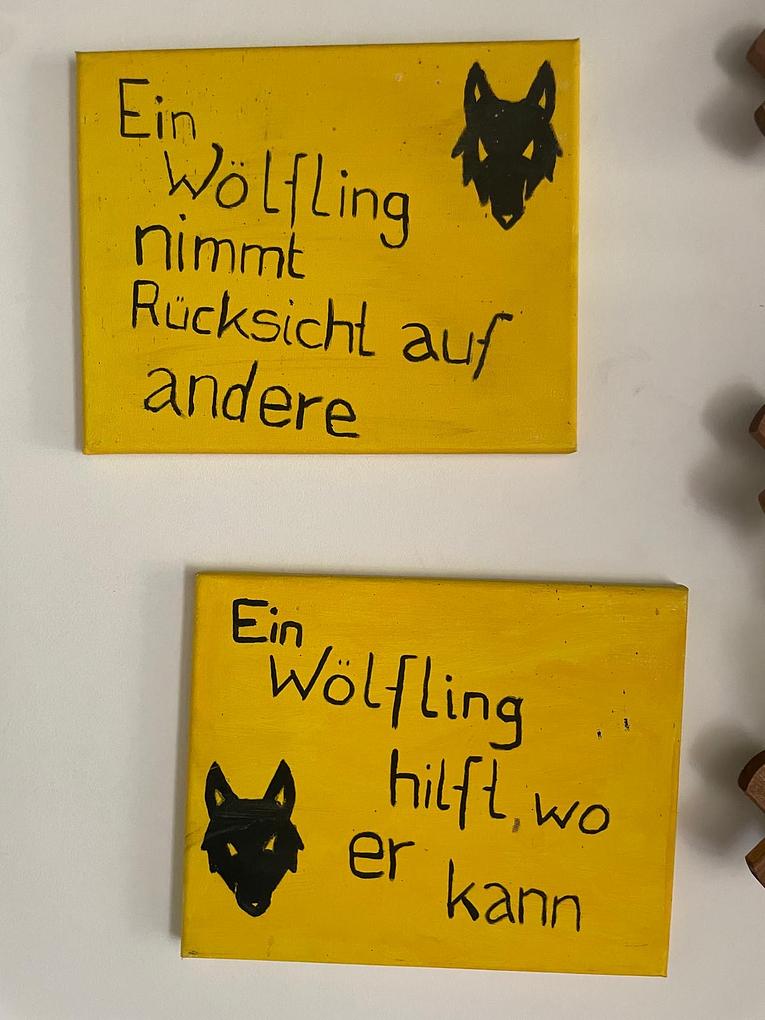 Ein
Wölfling
nimmt
Rücksicht auf
andere
Ein
Wölfling
hilft, wo
er
kann